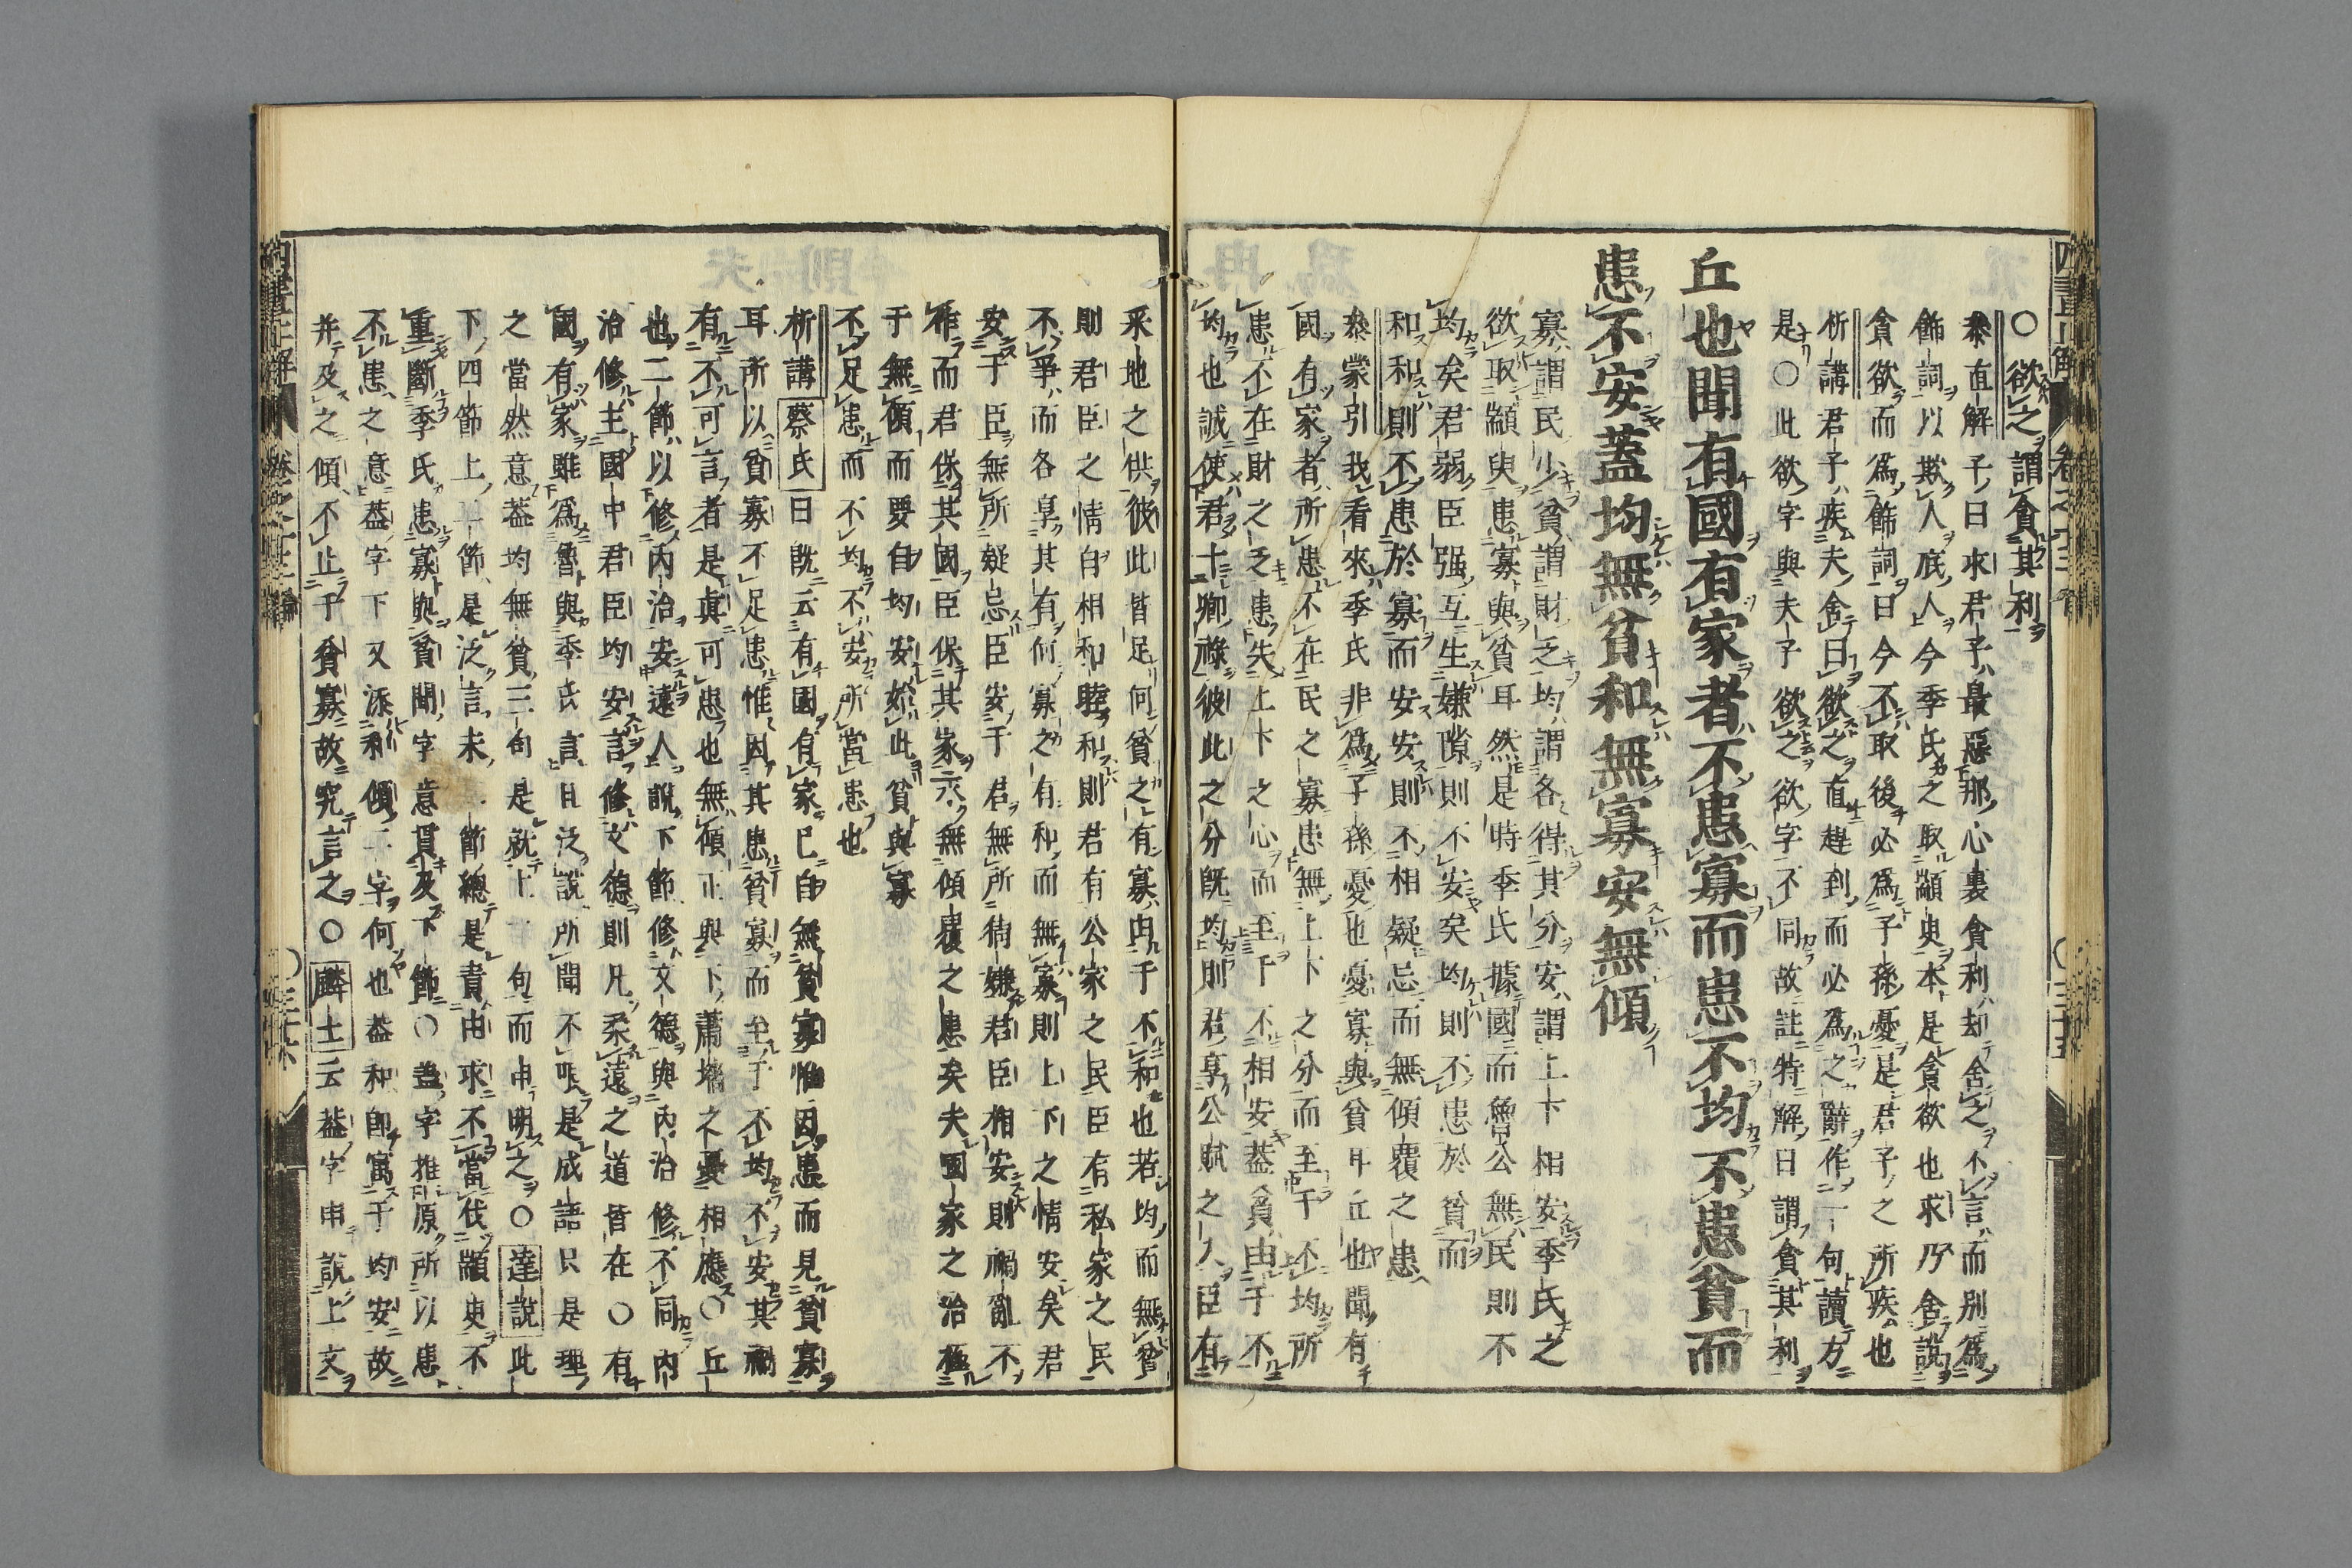 ○欲之謂貪其利
叅直解子曰求君子最惡那心裏貪利却舍之不言而別為
飾詞以欺人底人今季氏之取顓臾本是貪欲也求乃舍說
貪欲而為飾詞曰今不取後必為子孫憂是君子之所疾也
析講君子疾夫舍曰欲之直趕到而必為之辭作一句讀方
是○此欲字與夫子欲之欲字不同故註特解曰謂貪其利
丘也聞有國有家者不患寡而患不均不患貧而
患不安蓋均無貧和無寡安無傾
寡謂民少貧謂財乏均謂各得其分安謂上下相安季氏之
欲取顓臾患寡與貧耳然是時季氏據國而魯公無民則不
均矣君弱臣强互生嫌隙則不安矣均則不患於貧而
和和則不患於寡而安安則不相疑忌而無傾覆之患
叅蒙引我看來季氏非為子孫憂也憂寡與貧耳丘也聞有
國有家者所患不在民之寡患無上下之分而至于不均所
患不在財之乏患失上下之心而至于不相安蓋貧由于不
均也誠使君十卿祿彼此之分既均則君享公賦之入臣有
采地之供彼此皆足何貧之有寡由于不和也若均而無貧
則君臣之情自相和睦和則君有公家之民臣有私家之民
不爭而各享其有何寡之有和而無寡則上下之情安矣君
安于臣無所疑忌臣安于君無所猜嫌君臣相安則禍亂不
作而君保其國臣保其家永無傾覆之患矣夫國家之治極
于無傾而要自均安始此貧與寡
不足患而不均不安所當患也
析講蔡氏曰既云有國有家已自無貧寡惟因患而見貧寡
耳所以貧寡不足患惟因其患貧寡而至于不均不安其禍
有不可言者是真可患也無傾正與下蕭墻之憂相應○丘
也二節以修內治安遠人說下節修文德與內治修不同內
治修主國中君臣均安言修文德則凡柔遠之道皆在○有
國有家雖為魯與季氏言且泛說所聞不患是成語只是理
之當然意蓋均無貧三句是就上一句而申明之○達說此
下四節上二節是泛言未二節總是責由求不當伐顓臾不
重斷季氏患寡與貧聞字意貫及下節○蓋字推原所以患
不患之意蓋字下又添和傾二字何也蓋和即寓于均安故
并及之傾不止于貧寡故究言之○麟士云蓋字申說上文